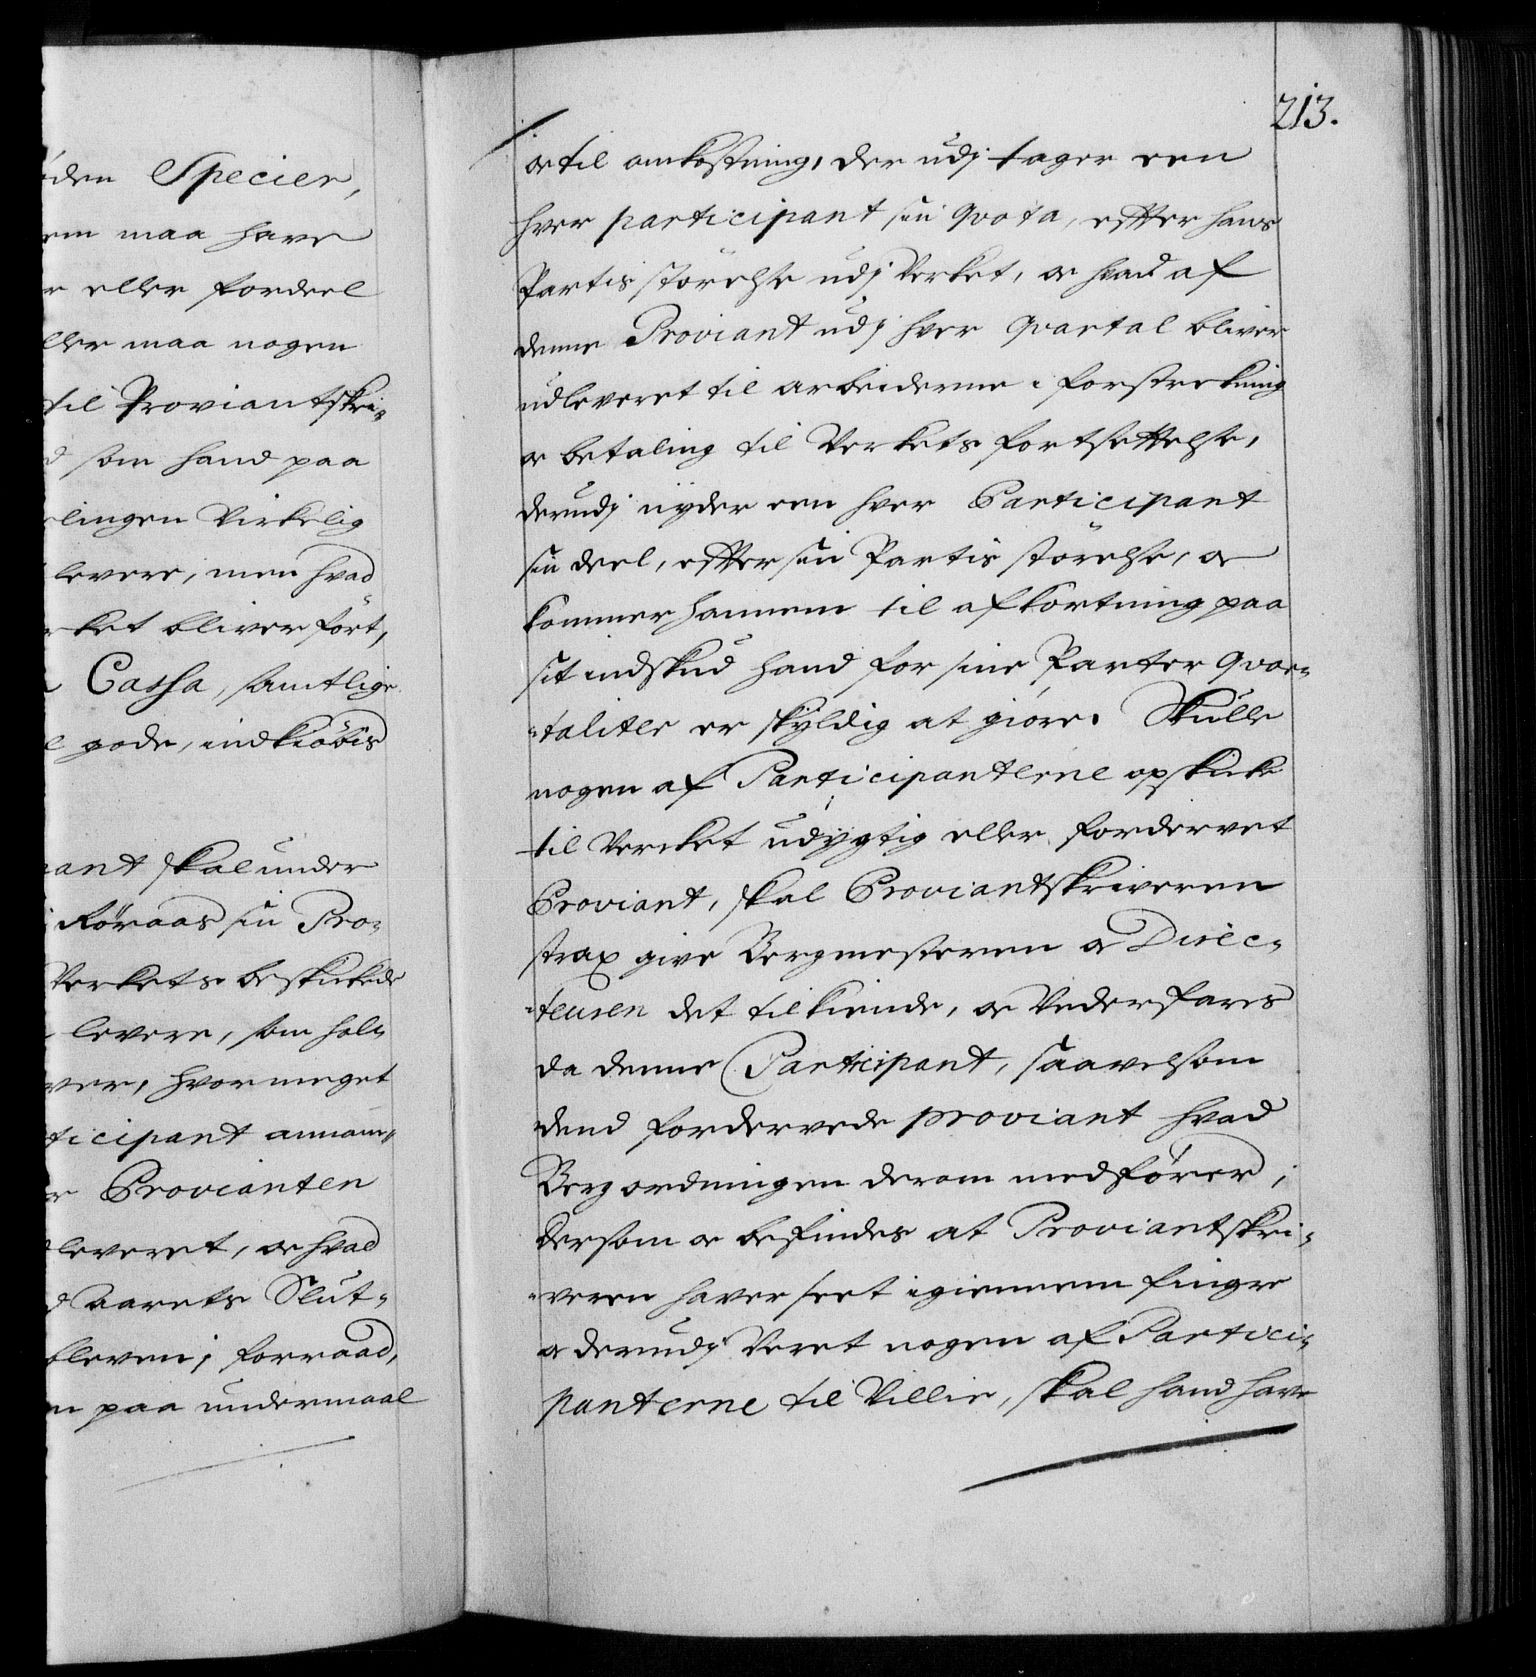 öden Specier,
em maa have
r eller fordeel
ller maa nogen
til Proviantskri-
d som hand paa
elingen Virkelig
levere, men hvad
rket bliver fört,
Cassa, samtlige
gode, indkiöbis
nant skal under
Röraas sin Pro-
Verkets beskikede
levere, som hol-
ver, hvor meget
ticipant annam-
r Provianten
leveret, og hvad
d aarets Slut-
bleven i forraad,
m paa undermaal
213.
og til omkostning, der udj tager een
hver participant sin qvota, effter hans
Partis störelse udj Verket, og hvad af
denne Proviant udj hver qvartal bliver
udleveret til arbeiderne i forstrekning
og betaling til Verkets fortsettelse,
derudj nyder een hver Participant
sin deel, effter sin Partis störelse, og
kommer hannem til afkortning paa
sit indskud hand for sine Parter qvar-
taliter er skyldig at giöre. Skulle
nogen af Participanterne opskicke
til Vercket udygtig eller fordervet
Proviant, skal Proviantskriveren
strax give Bergmesteren og Direc-
teuren det tilkiende, og Vederfares
da denne Participant, saavelsom
dend fordervede proviant hvad
Bergordningen derom medförer,
Dersom og befindes at Proviantskri-
veren haver seet igiennem fingre
og derudj Veret nogen af Partici-
panterne til Villie, skal hand have